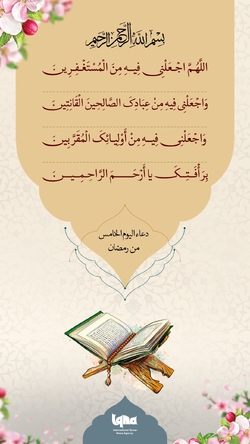 بِسْمِ اللَّهِ الرَّحْمَنِ الرَّحِيمِ
اللَّهُمَّ اجْعَلْنِي فِيهِ مِنَ الْمُسْتَغْفِرِينَ
وَاجْعَلْنِي فِيهِ مِنْ عِبَادِكَ الصَّالِحِينَ الْقَانِتِينَ
وَاجْعَلْنِي فِيهِ مِنْ أَوْلِيَائِكَ الْمُقَرَّبِينَ
بِرَأْفَتِكَ يَا أَرْحَمَ الرَّاحِمِينَ
دعاء اليوم الخامس
من رمضان
iqna
International Quran
News Agency